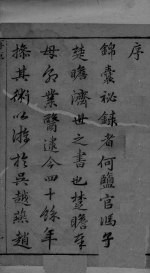 序
錦囊祕錄者何鹽官馮子
楚瞻濟世之書也楚瞻
母業醫逮今四十餘年
操其術以游於吳越燕趙